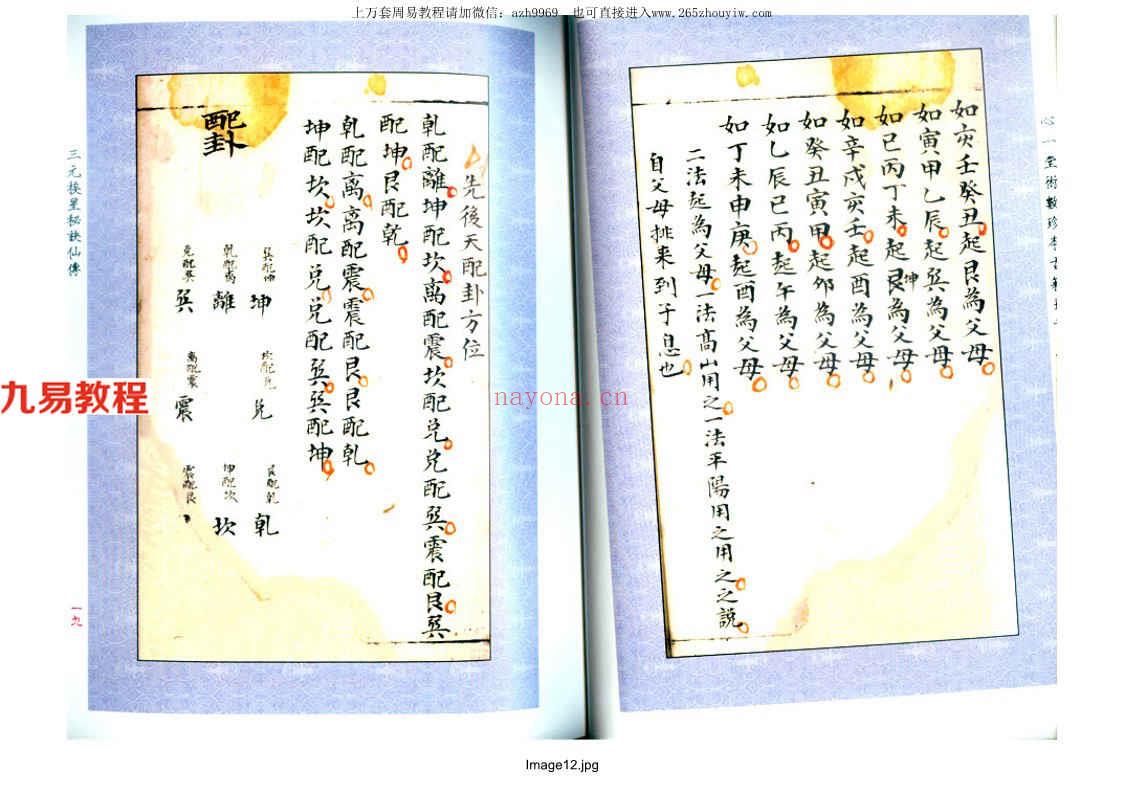 上万套周易教程请加微信：azh9969，也可直接进入www.265zhouyiw.com
心一堂術數珍本古籍
如亥壬癸丑起艮為父母
如寅甲乙辰起巽為父母
如巳丙丁未起艮為父母
坤
如辛戌亥壬起酉為父母
如癸丑寅甲起卯為父母
如乙辰巳丙起午為父母
如丁未申庚起酉為父母
二法起為父母一法高山用之一法平陽用之用之之說
自父母排来到子息也
先後天配卦方位
乾配離坤配坎离配震坎配兑兑配巽震配艮巽
配坤艮配乾
乾配离离配震震配艮艮配乾
坤配坎坎配兑兑配巽巽配坤
配卦
巽配坤
坤
乾配离
離
兑配巽
巽
坎配兑
兑
离配震
震
艮配乾
乾
坤配坎
坎
震配艮
三元挨星秘訣仙傳
一九
九易教程
nayona.cn
Image12.jpg